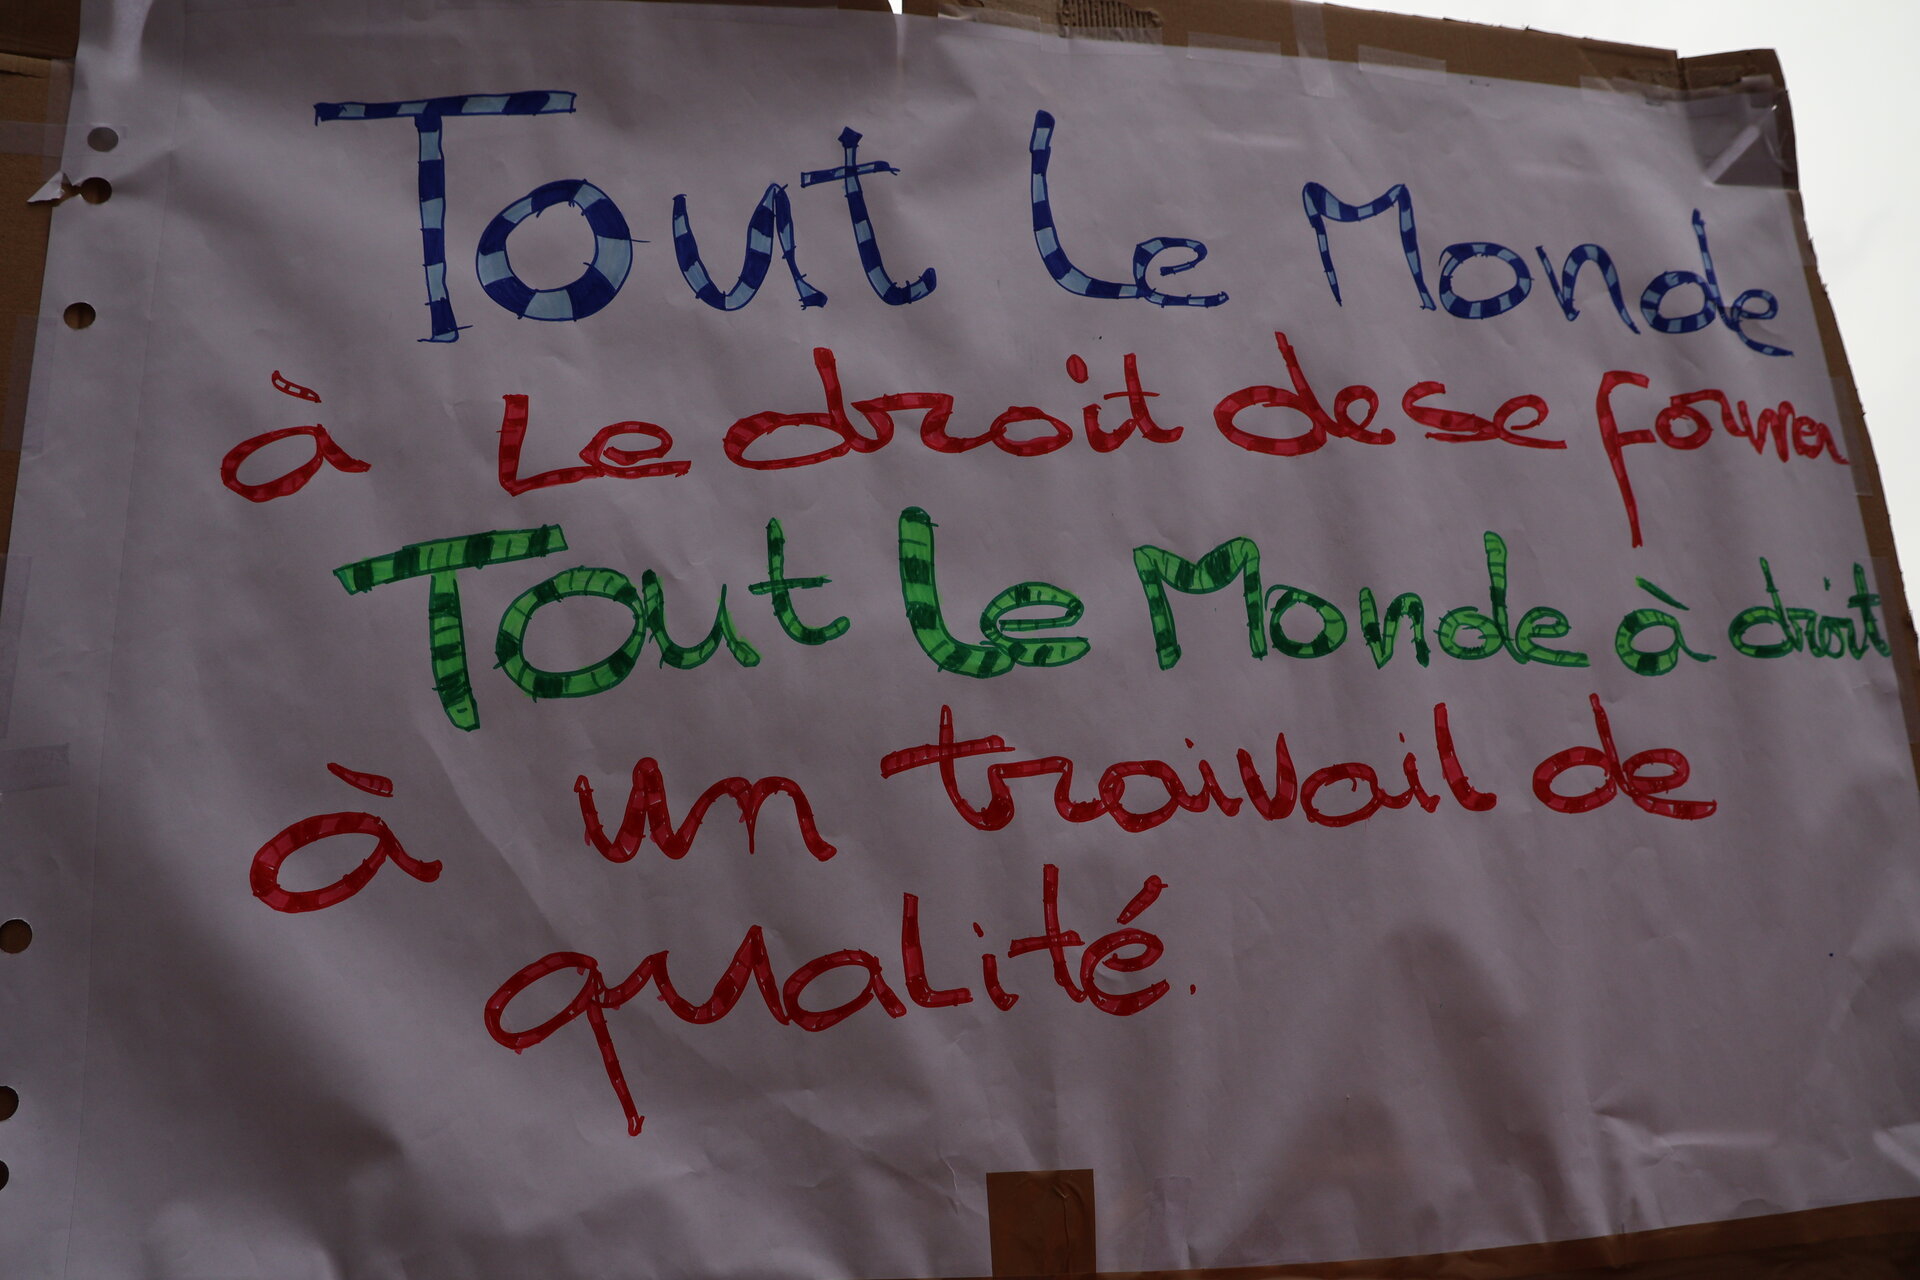 Tout Le Monde
à Le droit de se former
Tout Le Monde à droit
à un travail de
qualité.